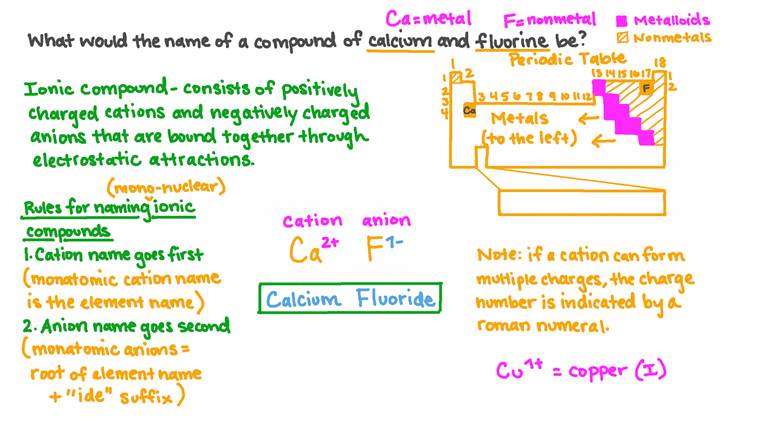 Ca=metal F=nonmetal
Metalloids
Nonmetals
What would the name of a compound of calcium and fluorine be?
Periodic Table
1 18
2 13 14 15 16 17
1 1
2 2
3 3 4 5 6 7 8 9 10 11 12
4
F
Ca
Metals
(to the left)
Ionic compound - consists of positively
charged cations and negatively charged
anions that are bound together through
electrostatic attractions.
(mono-nuclear)
Rules for naming ionic
compounds
1. Cation name goes first
(monatomic cation name
is the element name)
2. Anion name goes second
(monatomic anions =
root of element name
+ "ide" suffix)
cation anion
Ca²⁺ F¹⁻
Calcium Fluoride
Note: if a cation can form
multiple charges, the charge
number is indicated by a
roman numeral.
Cu¹⁺ = copper (I)